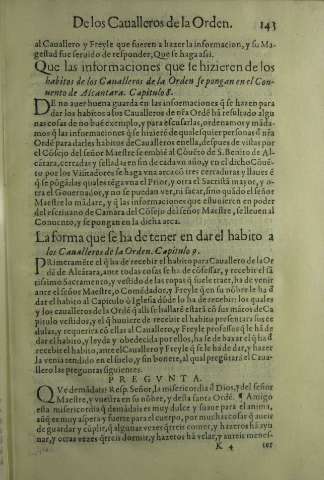 De los Caualleros de la Orden. 143
al Cauallero y Freyle que fueren a hazer la informacion, y su Ma-
gestad fue seruido de responder, Que se haga assi.
Que las informaciones que se hizieren de los
habitos de los Caualleros de la Orden se pongan en el Con-
uento de Alcantara. Capitulo 8.
DE no auer buena guarda en las informaciones q̃ se hazen para
dar los habitos a los Caualleros de nr̃a Ordẽ ha resultado algu
nas cosas de no buẽ exemplo, y para escusarlas, ordenamos y mãda-
mos q̃ las informaciones q̃ se hizierẽ de qualesquier personas d̃ nr̃a
Ordẽ para darles habitos de Caualleros en ella, despues de vistas por
el Cõsejo del señor Maestre se embiẽ al Cõuẽto de S. Benito de Al-
cãtara, cerradas y selladas en fin de cada vn año, y en el dicho Cõuẽ-
to por los Visitadores se haga vna arca cõ tres cerraduras y llaues
q̃ se põgã, las quales tẽga vna el Prior, y otra el Sacristã mayor, y o-
tra el Gouernador, y no se puedan ver, ni sacar, sino quãdo el señor
Maestre lo mãdare, y q̃ las informaciones que estuuieren en poder
del escriuano de Camara del Cõsejo del señor Maestre, se lleuen al
Conuento, y se pongan en la dicha arca.
La forma que se ha de tener en dar el habito a
los Caualleros de la Orden. Capitulo 9.
PRimeramẽte el q̃ ha de recebir el habito para Cauallero de la Or
dẽ de Alcãtara, ante todas cosas se ha de cõfessar, y recebir el sã
tissimo Sacramento, y vestido de las ropas q̃ suele traer, ha de venir
ante el señor Maestre, o Comẽdador, y Freyle q̃ en su nõbre le ha d̃
dar el habito al Capitulo o Iglesia dõde lo ha de recebir: los quales
y los caualleros de la Ordẽ q̃ alli se hallarẽ estarã cõ sus mãtos de Ca
pitulo vestidos, y el q̃ huuiere de recebir el habito presentara sus ce
dulas, y requerira cõ ellas al Cauallero, y Freyle professo q̃ le hã de
dar el habito, y leyda y obedecida por ellos, ha se de baxar el q̃ ha d̃
recebir el habito, ante el Cauallero y Freyle q̃ se le hã de dar, y hazer
la venia tendido en el suelo, y sin bonete, al qual preguntara el Caua-
llero las preguntas siguientes.
PREGVNTA.
QVe demãdais? Resp. Señor, la misericordia d̃ Dios, y del señor
Maestre, y vuestra en su nõbre, y desta santa Ordẽ. ¶ Amigo
esta misericordia q̃ demãdais es muy dulce y suaue para el anima,
aũq̃ es muy aspera y fuerte para el cuerpo, por muchas cosas q̃ aueis
de guardar y cũplir, q̃ algunas vezes q̃rreis comer, y hazeros hã ayu
nar, y otras vezes q̃rreis dormir, y hazeros hã velar, y aureis menes-
K 4 ter